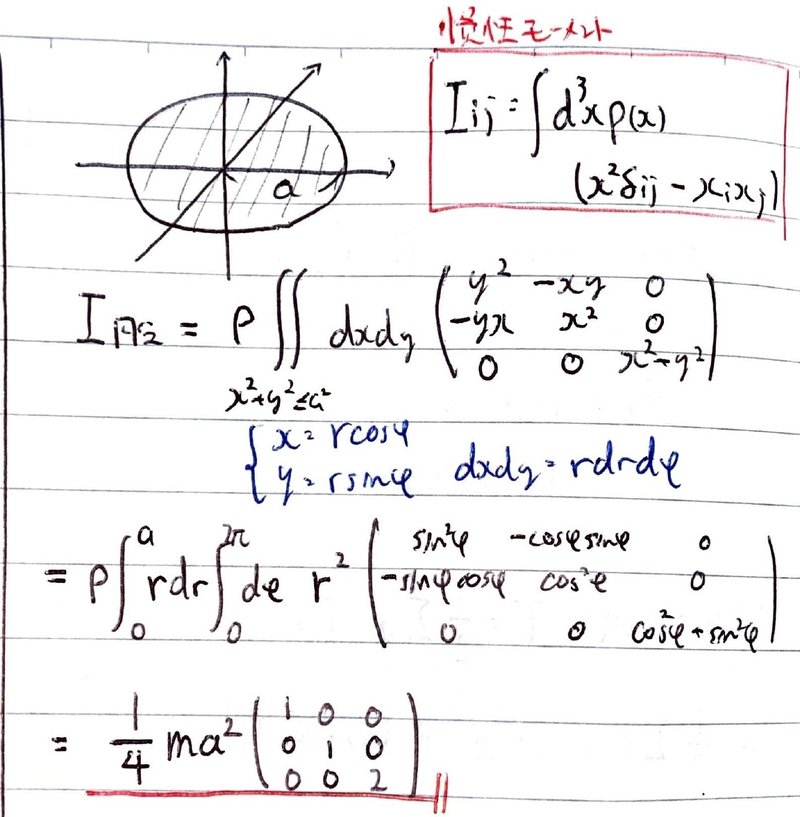 慣性モーメント
I_{ij} = ∫ d³x ρ(x)
(x²δ_{ij} - x_i x_j)
a
I_{円盤} = ρ ∬_{x²+y²≤a²} dxdy ( y² -xy 0
-yx x² 0
0 0 x²+y² )
{ x = r cosφ
y = r sinφ dxdy = rdrdφ
= ρ ∫_0^a rdr ∫_0^{2π} dφ r² ( sin²φ -cosφ sinφ 0
-sinφ cosφ cos²φ 0
0 0 cos²φ + sin²φ )
= 1/4 ma² ( 1 0 0
0 1 0
0 0 2 )